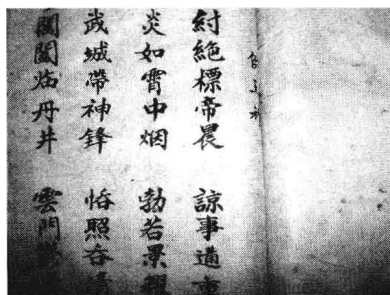 紂絶標帝晨 諒事遘重
炎如霄中烟 勃若景耀
武城帶神鋒 恬照吞清
閶闔臨丹井 雲門